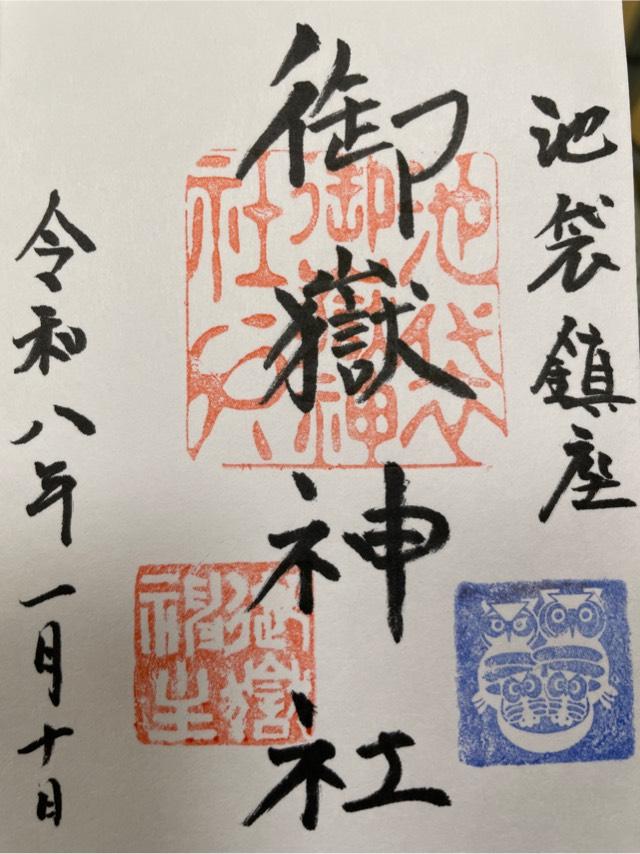 池袋鎮座
御嶽神社
令和八年一月十日
池袋
御嶽神
社